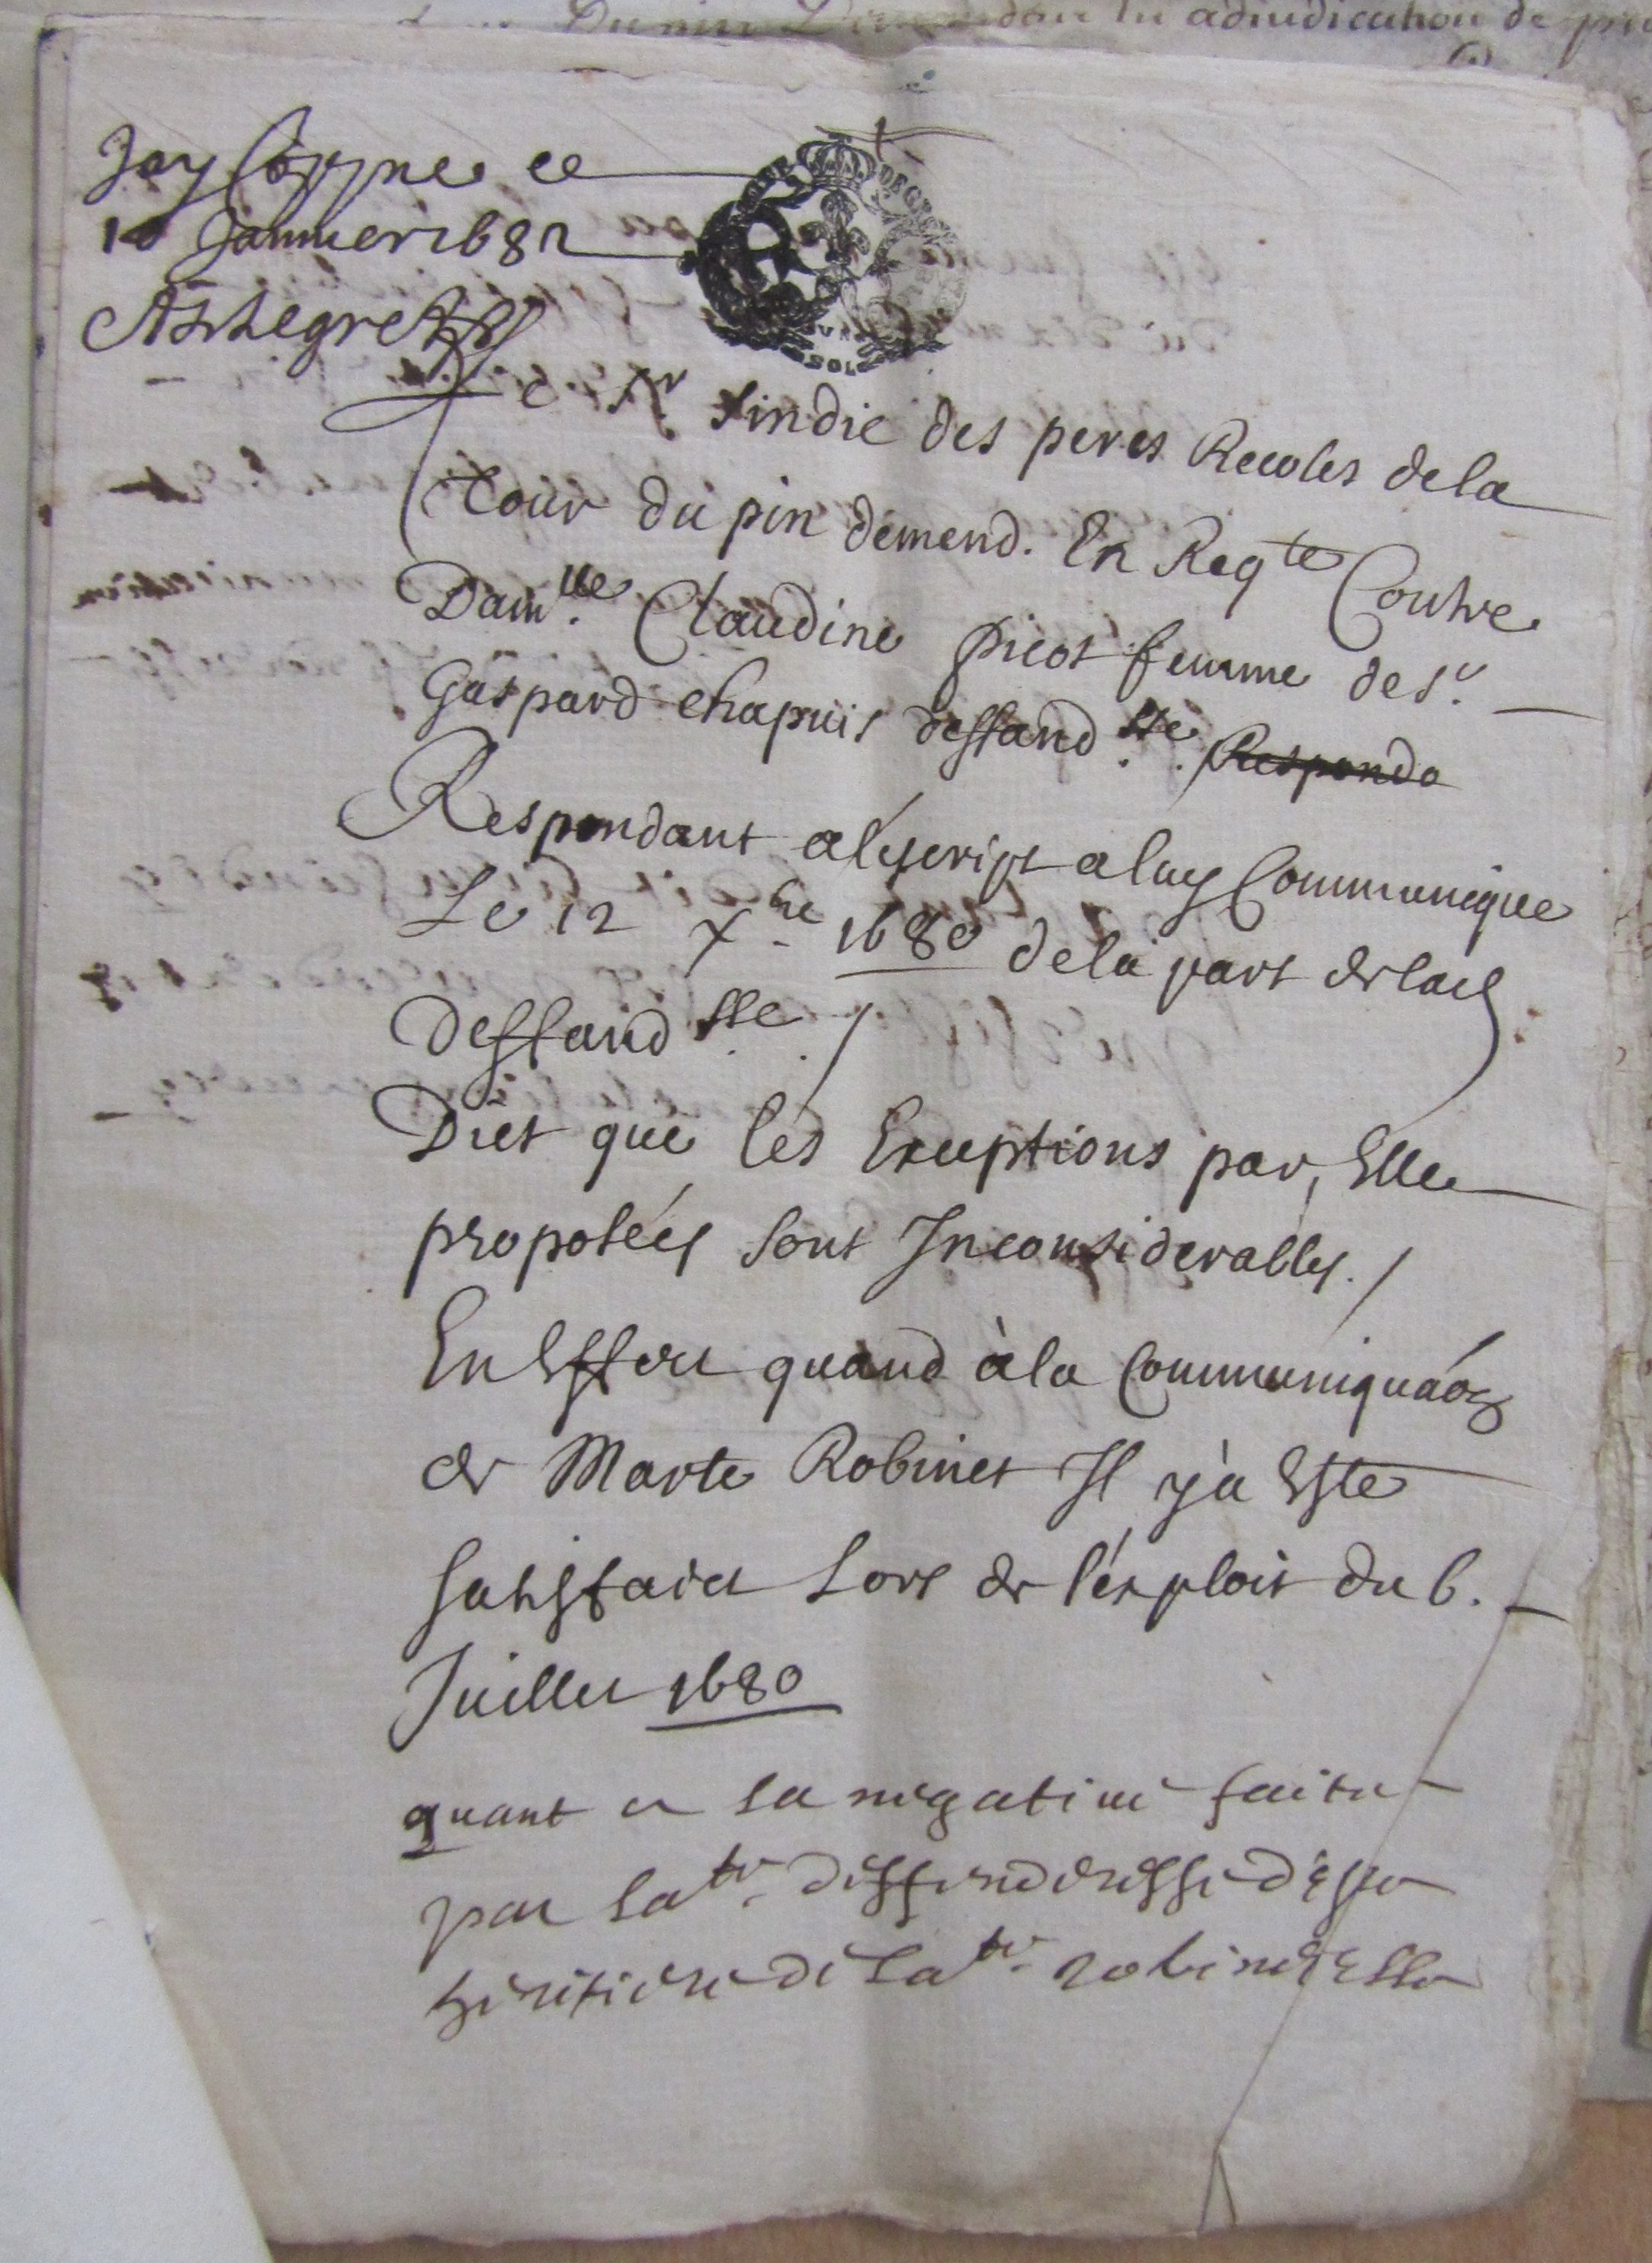 adiudication de
Jay Coppie ce
10 Januier 1682
Le Sr sindic des peres Recoles de la
tour du pin demend. En Reqte Contre
Damlle. Claudine picot femme de sr.
Gaspard chapuis deffandsse. Responda
Respondant a lescript a luy Communique
Le 12 xbre 1680 de la part de lad
deffandsse. /
Dict que les Exceptions par Elle
proposées sont Inconsiderables. /
En Effect quand à la Communiquaon
de Marte Robinet Il y a Esté
satisfaict Lors de l'exploit du 6.
Juillet 1680
quant a la negatiue faite
par lade. deffenderesse d'estre
heritiere de lade. robinet elle